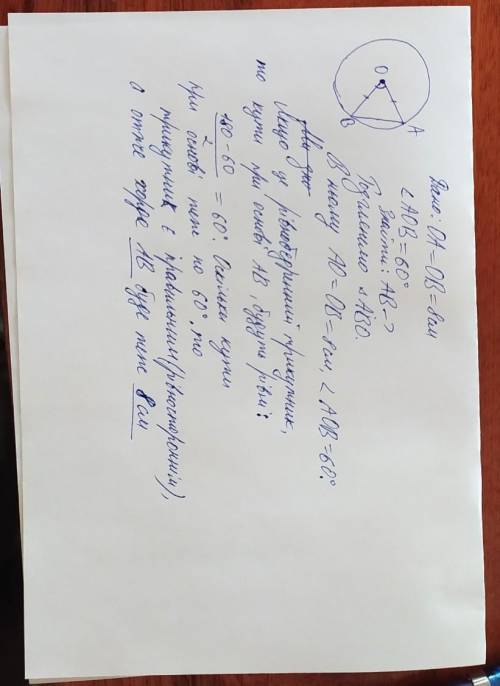 Дано: OA = OB = 8 см
∠AOB = 60°
Знайти: AB - ?
Розглянемо △ABO.
В ньому AO = OB = 8 см, ∠AOB = 60°.
Якщо це рівнобедрений трикутник,
то кути при основі AB, будуть рівні:
180 - 60
2
= 60°. Оскільки кути
при основі теж по 60°, то
трикутник є правильним (рівностороннім),
а отже хорда AB буде теж 8 см
O
B
A